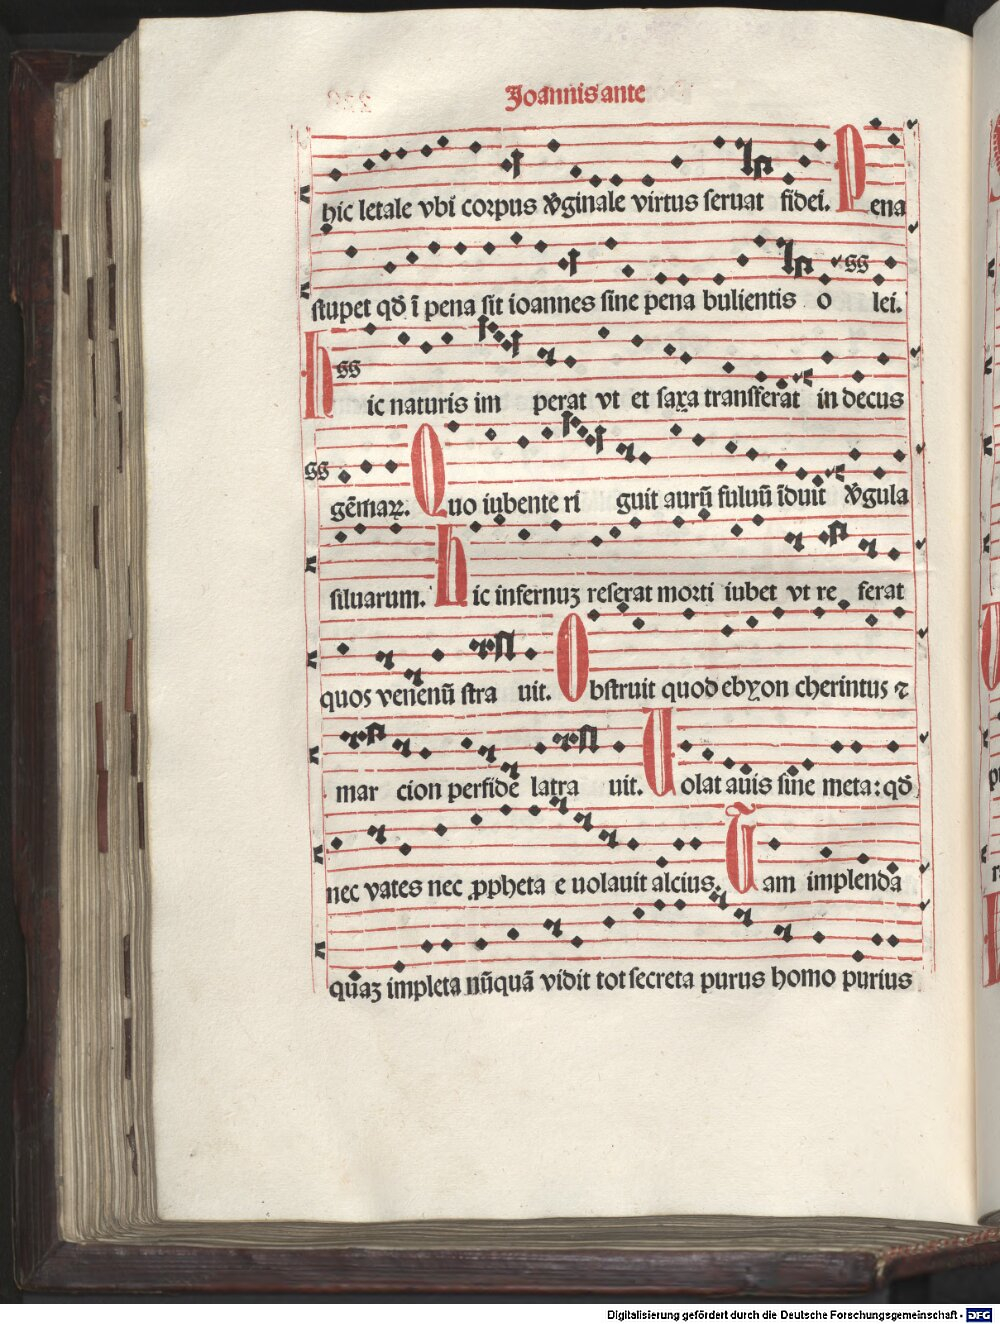 Joannis ante
hic letale vbi corpus v̄ginale virtus ſeruat fidei. Pena
ſtupet qđ ī pena ſit ioannes ſine pena bulientis o lei.
Hic naturis im perat vt et ſaxa tranſferāt in decus
gēmaꝝ. Quo iubente ri guit aurū fuluū īduit v̄gula
ſiluarum. Hic infernuꝫ reſerat morti iubet vt re ferat
quos venenū ſtra uit. Obſtruit quod ebyon cherintus ⁊
mar cion perfide latra uit. Uolat auis ſine meta: qđ
nec vates nec ꝓpheta e uolauit alcius. Tam implenda
quaꝫ impleta nūquā vidit tot ſecreta purus homo purius
Digitalisierung gefördert durch die Deutsche Forschungsgemeinschaft - DFG